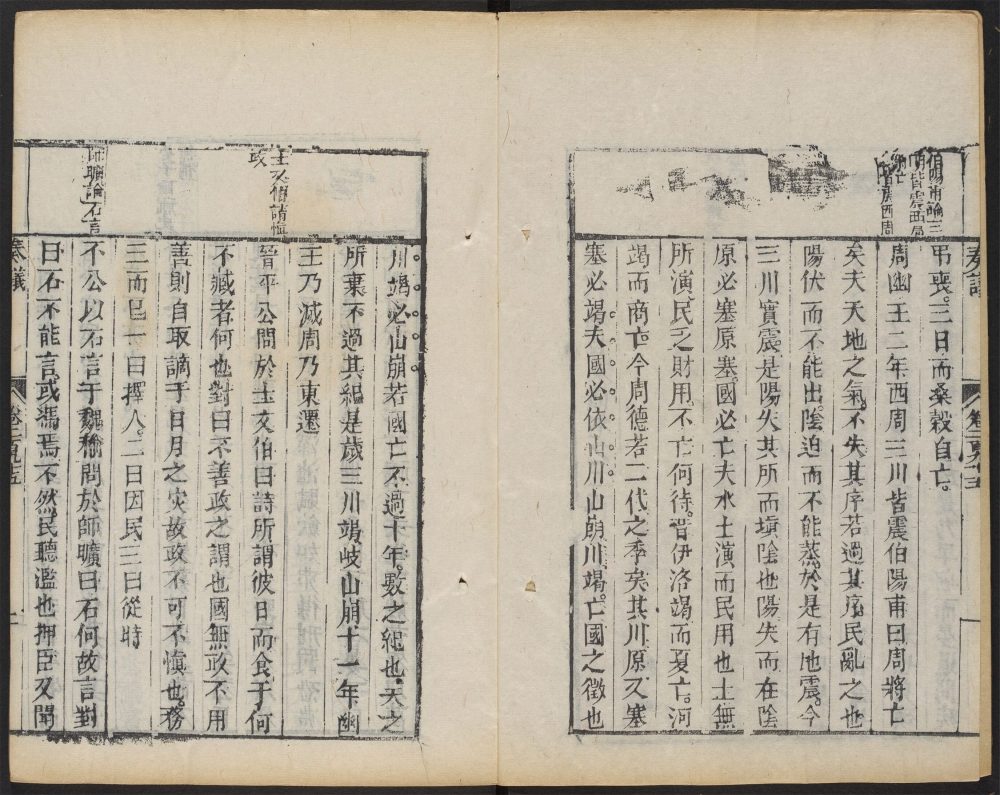 奏議
弔喪三日而桑榖自亡
周幽王二年西周三川皆震伯陽甫曰周將亡
矣夫天地之氣不失其序若過其序民亂之也
陽伏而不能出陰迫而不能蒸於是有地震今
三川實震是陽失其所而塡陰也陽失而在陰
原必塞原塞國必亡夫水土演而民用也土無
所演民乏財用不亡何待昔伊洛竭而夏亡河
竭而商亡今周德若二代之季矣其川原又塞
塞必竭夫國必依山川山崩川竭亡國之徵也
伯陽甫論三
川皆震西周
西周
川竭必山崩若國亡不過十年數之紀也天之
所棄不過其紀是歲三川竭岐山崩十一年幽
王乃滅周乃東遷
晉平公問於士文伯曰詩所謂彼日而食于何
不臧者何也對曰不善政之謂也國無政不用
善則自取謫于日月之灾故政不可不慎也務
三而已一曰擇人二曰因民三曰從時
不公以石言于魏榆問於師曠曰石何故言對
曰石不能言或憑焉不然民聽濫也抑臣又聞
士文伯請慎
政
師曠論石言
奏議